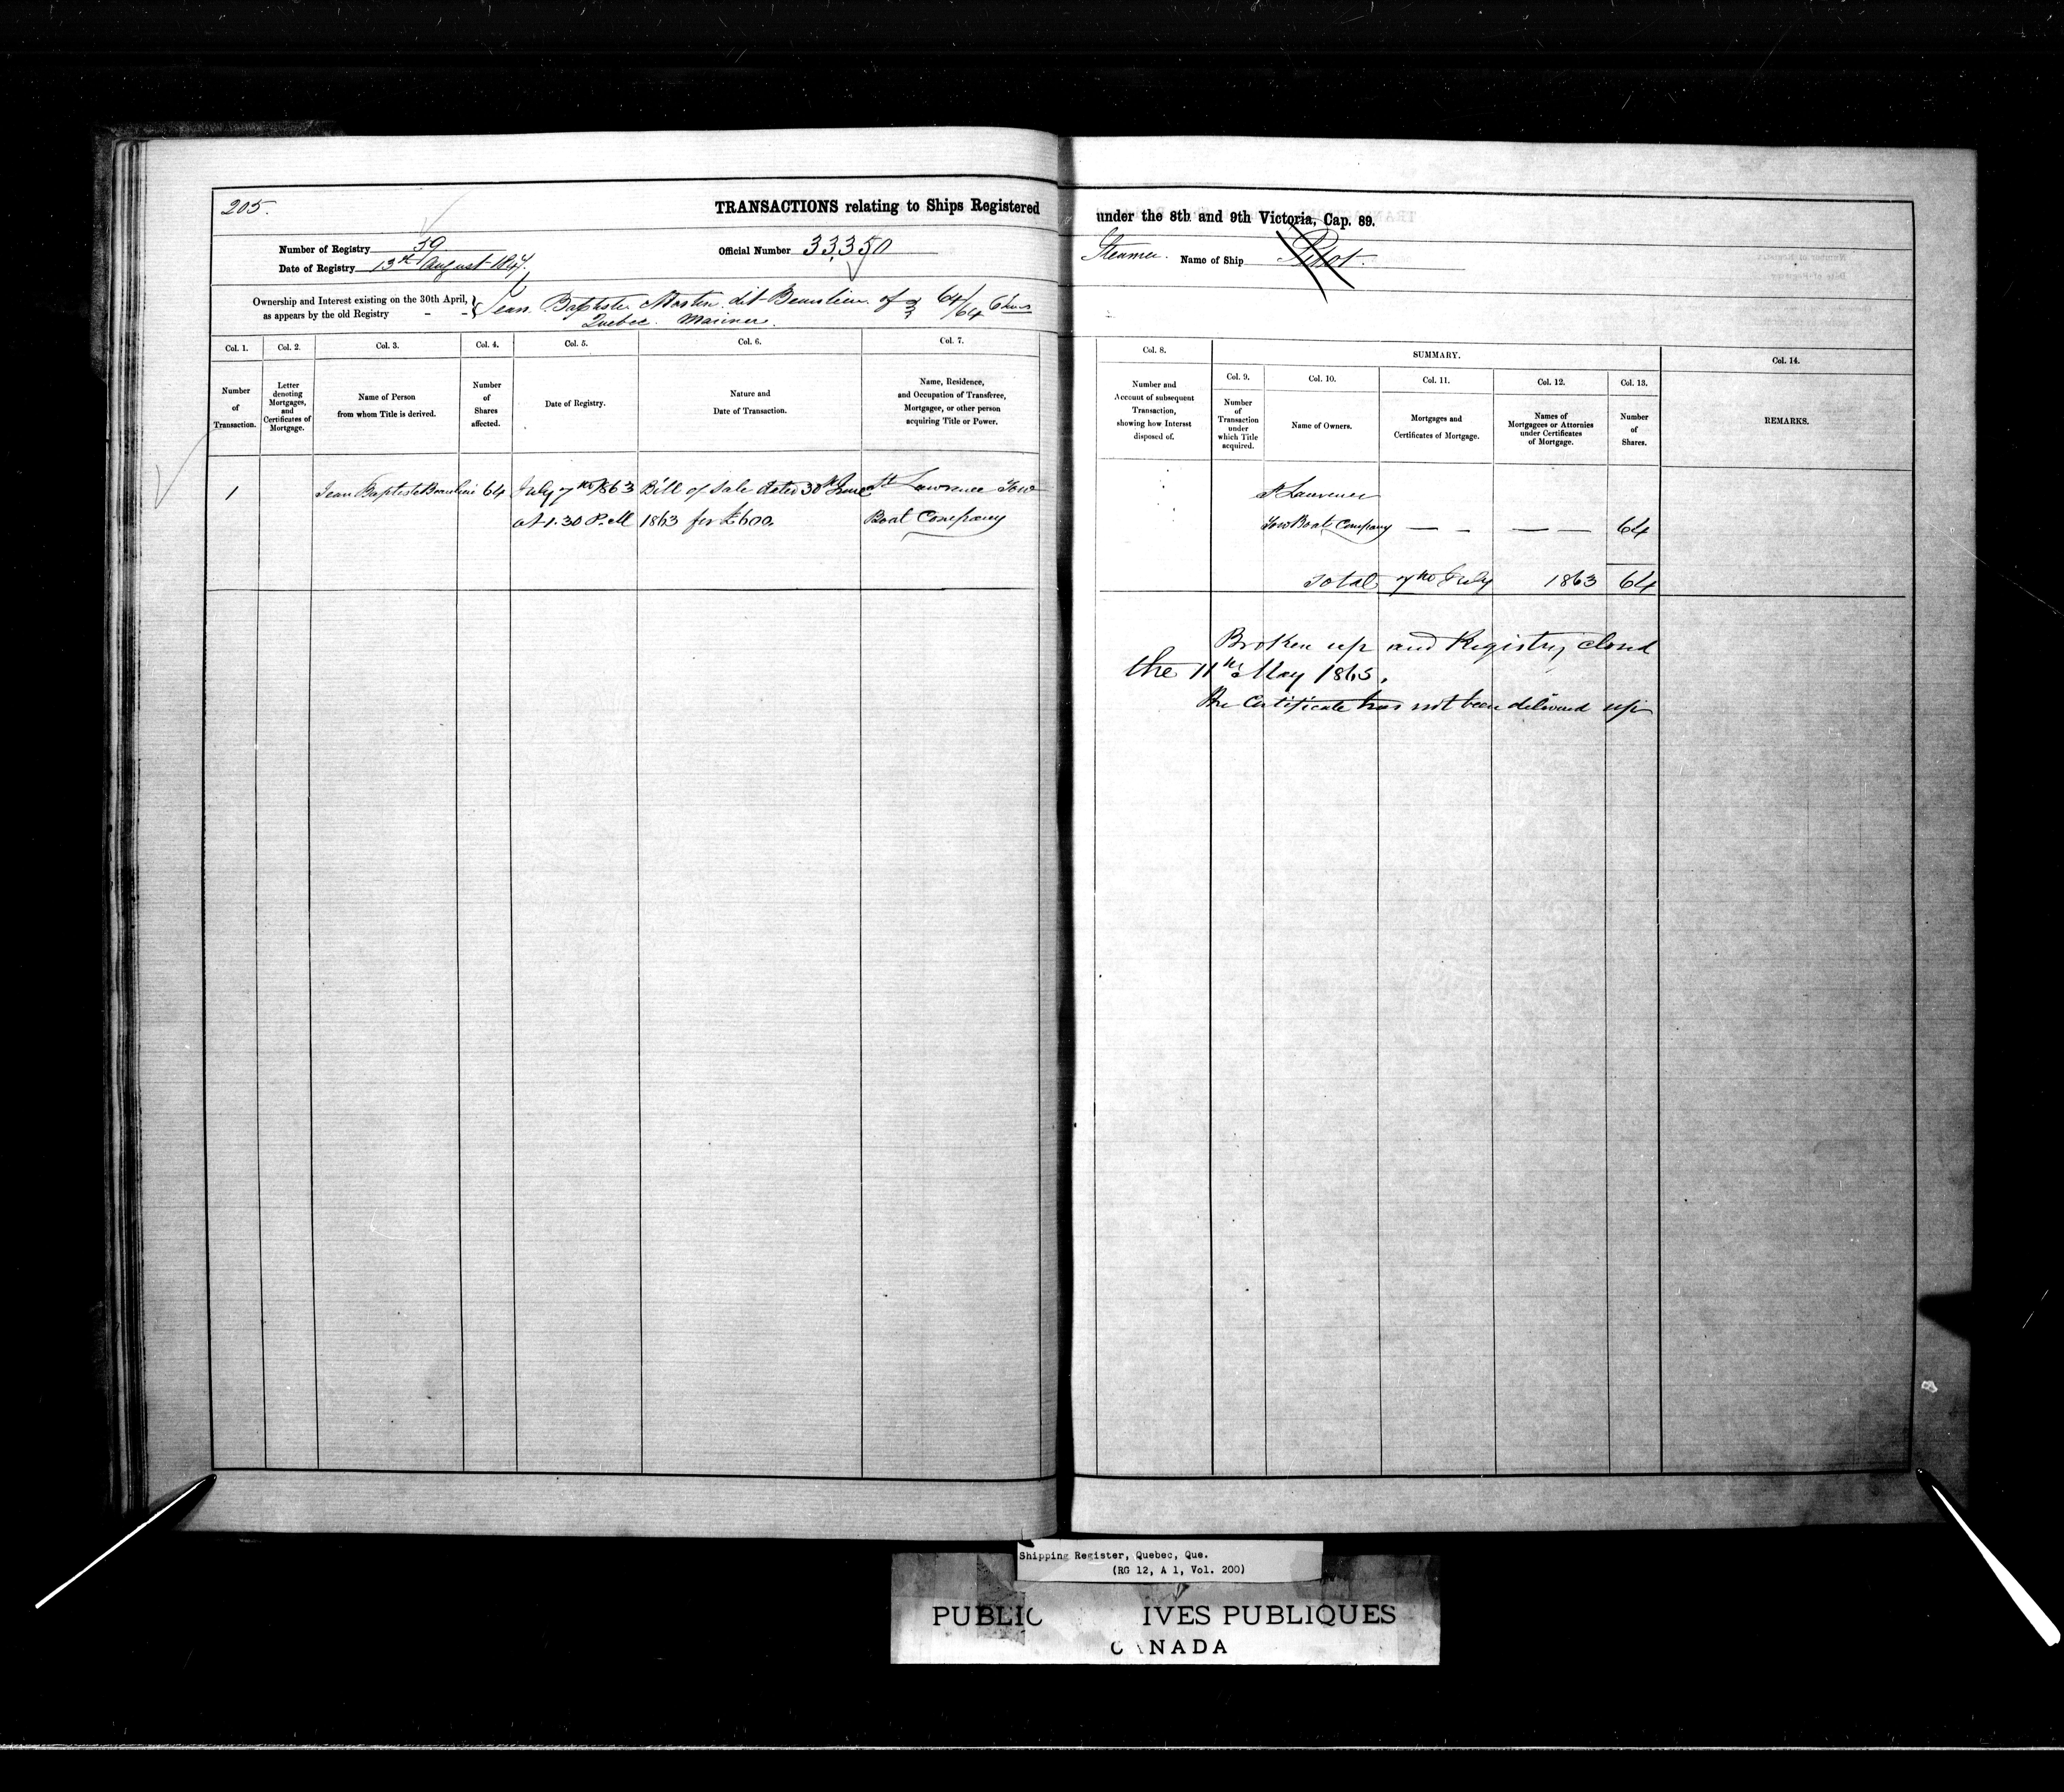 205.
TRANSACTIONS relating to Ships Registered under the 8th and 9th Victoria, Cap. 89.
Number of Registry 59
Date of Registry 13th August 1847
Official Number 33,350
Steamer. Name of Ship Pilot.
Ownership and Interest existing on the 30th April, as appears by the old Registry - -
Jean Baptiste dit Beaulieu of 64/64
Quebec. Mariner.
Col. 1. Number of Transaction.
Col. 2. Letter denoting Mortgages, and Certificates of Mortgage.
Col. 3. Name of Person from whom Title is derived.
Col. 4. Number of Shares affected.
Col. 5. Date of Registry.
Col. 6. Nature and Date of Transaction.
Col. 7. Name, Residence, and Occupation of Transferee, Mortgagee, or other person acquiring Title or Power.
Col. 8. Number and Account of subsequent Transaction, showing how Interest disposed of.
SUMMARY.
Col. 9. Number of Transaction under which Title acquired.
Col. 10. Name of Owners.
Col. 11. Mortgages and Certificates of Mortgage.
Col. 12. Names of Mortgagees or Attornies under Certificates of Mortgage.
Col. 13. Number of Shares.
Col. 14. REMARKS.
1 Jean Baptiste Beaulieu 64 July 7th 1863 Bill of Sale dated 30th June St Lawrence Tow
at 1.30 P.M 1863 for £600 Boat Company
St Lawrence
Tow Boat Company — - — — 64
Total 7th July 1863 64
Broken up and Registry closed
the 11th May 1865.
The Certificate has not been delivered up
Shipping Register, Quebec, Que.
(RG 12, A 1, Vol. 200)
PUBLIC IVES PUBLIQUES
CANADA